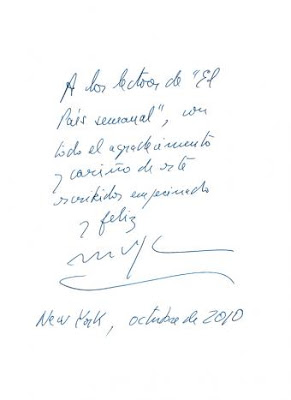 A los lectores de "El
País semanal", con
todo el agradecimiento
y cariño de este
escribidor emperrado
y feliz
New York, octubre de 2010